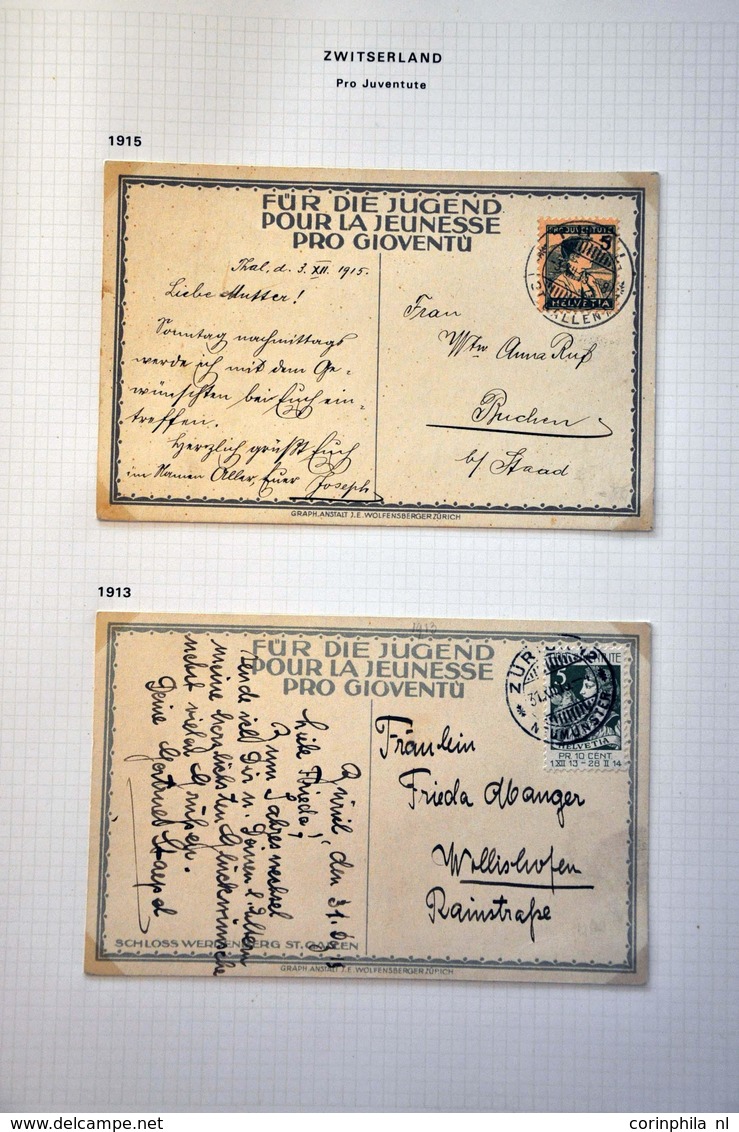 ZWITSERLAND
Pro Juventute
1915
FÜR DIE JUGEND
POUR LA JEUNESSE
PRO GIOVENTÙ
Thal, d. 3. XII. 1915.
Liebe Mutter!
Sonntag nachmittags
werde ich mit dem Ge-
wünschten bei Euch ein-
treffen.
Herzlich grüßt Euch
im Namen Aller, Euer Joseph
PRO JUVENTUTE
5
HELVETIA
Frau
Wtw Anna Ruf
Buchen
b/ Staad
GRAPH. ANSTALT J.E. WOLFENSBERGER ZÜRICH
1913
1913
FÜR DIE JUGEND
POUR LA JEUNESSE
PRO GIOVENTÙ
Zürich, den 31.
Liebe Frieda!
Zum Jahreswechsel
sende ich Dir u. Deinen l. Eltern
meine herzlichsten Glückwünsche
nebst vielen Grüßen.
Deine Gertrud
ZÜRICH 12
NEUMÜNSTER
5
HELVETIA
PR. 10 CENT.
1 XII 13 - 28 II 14
Fräulein
Frieda Abanger
Wollishofen
Rainstraße
SCHLOSS WERDENBERG ST. GALLEN
GRAPH. ANSTALT J.E. WOLFENSBERGER ZÜRICH
corinphila nl